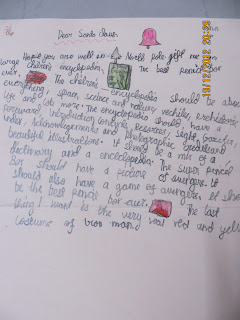 Dear Santa Claus
Hope you are well in North pole gift me in
large children's encyclopedia, The best pencil box
ever, The children's encyclopedia should be about
everything! space, science and nature, vechiles, prehistoric
life and lots more. The encyclopedia should have a
foreward, introduction contents, resourses, sights, glossary,
index, acknowledgements and Photographic credits and
beautiful illustrations. It should be a mix of a
dictionary and a enceclopedia. The super pencil
Box should have a picture of avengers. It
should also have a game of avengers. It should
be the best pencil box ever. The last
thing I want is the very real red and yell
costume of iron man